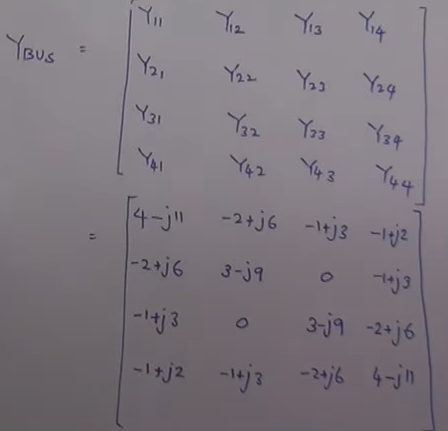 Y11 Y12 Y13 Y14
YBUS = Y21 Y22 Y23 Y24
Y31 Y32 Y33 Y34
Y41 Y42 Y43 Y44
= 4-j11 -2+j6 -1+j3 -1+j2
-2+j6 3-j9 0 -1+j3
-1+j3 0 3-j9 -2+j6
-1+j2 -1+j3 -2+j6 4-j11